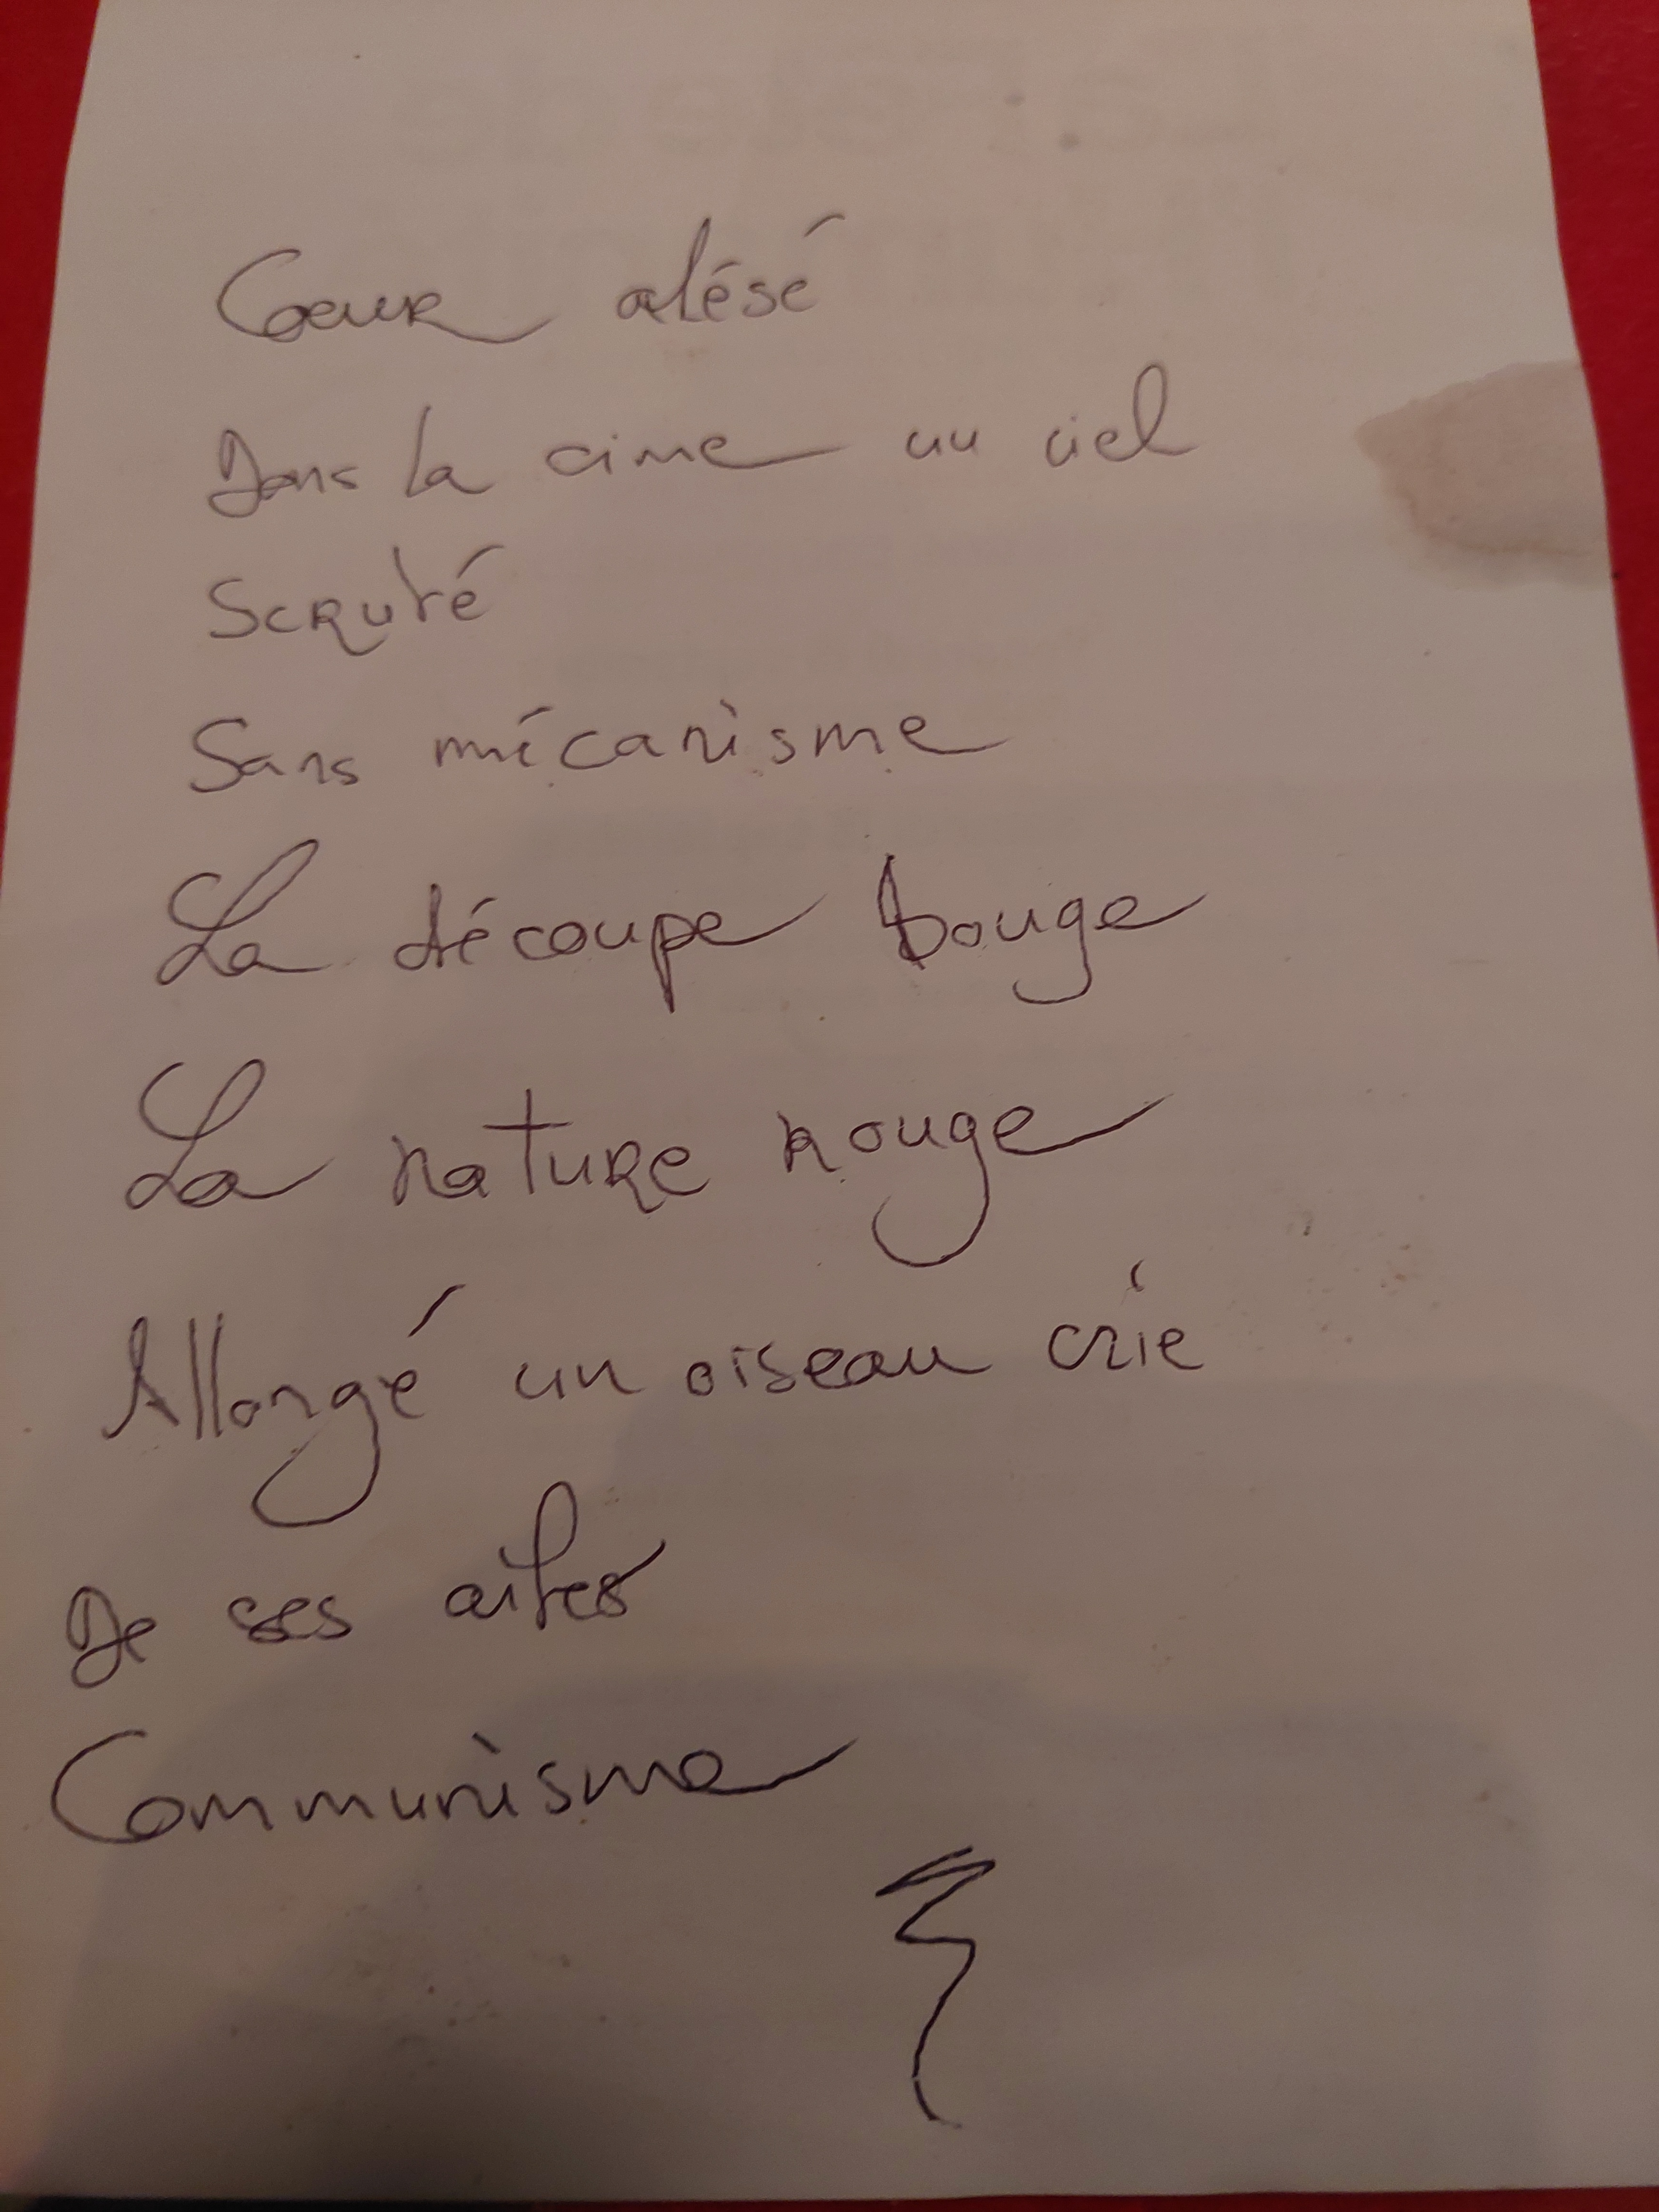 Coeur alésé
Dans la cime un ciel
Scruté
Sans mécanisme
La découpe bouge
La nature rouge
Allongé un oiseau crie
De ses ailes
Communisme